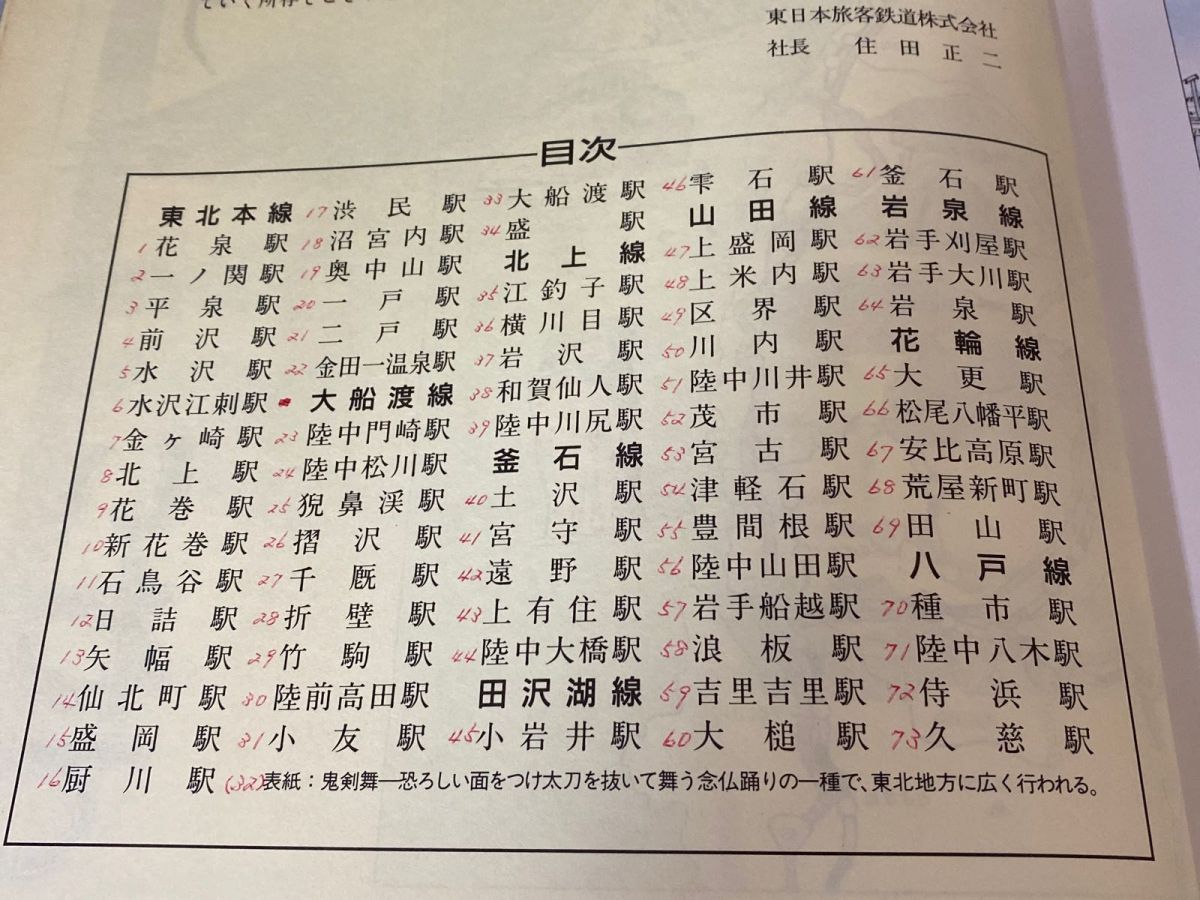 ていく所存でござ
東日本旅客鉄道株式会社
社長 住田正二
目次
東北本線
1 花泉駅
2 一ノ関駅
3 平泉駅
4 前沢駅
5 水沢駅
6 水沢江刺駅
7 金ヶ崎駅
8 北上駅
9 花巻駅
10 新花巻駅
11 石鳥谷駅
12 日詰駅
13 矢幅駅
14 仙北町駅
15 盛岡駅
16 厨川駅
17 渋民駅
18 沼宮内駅
19 奥中山駅
20 一戸駅
21 二戸駅
22 金田一温泉駅
大船渡線
23 陸中門崎駅
24 陸中松川駅
25 猊鼻渓駅
26 摺沢駅
27 千厩駅
28 折壁駅
29 竹駒駅
30 陸前高田駅
31 小友駅
33 大船渡駅
34 盛駅
北上線
35 江釣子駅
36 横川目駅
37 岩沢駅
38 和賀仙人駅
39 陸中川尻駅
釜石線
40 土沢駅
41 宮守駅
42 遠野駅
43 上有住駅
44 陸中大橋駅
田沢湖線
45 小岩井駅
46 雫石駅
山田線
47 上盛岡駅
48 上米内駅
49 区界駅
50 川内駅
51 陸中川井駅
52 茂市駅
53 宮古駅
54 津軽石駅
55 豊間根駅
56 陸中山田駅
57 岩手船越駅
58 浪板駅
59 吉里吉里駅
60 大槌駅
61 釜石駅
岩泉線
62 岩手刈屋駅
63 岩手大川駅
64 岩泉駅
花輪線
65 大更駅
66 松尾八幡平駅
67 安比高原駅
68 荒屋新町駅
69 田山駅
八戸線
70 種市駅
71 陸中八木駅
72 侍浜駅
73 久慈駅
(32) 表紙：鬼剣舞―恐ろしい面をつけ太刀を抜いて舞う念仏踊りの一種で、東北地方に広く行われる。